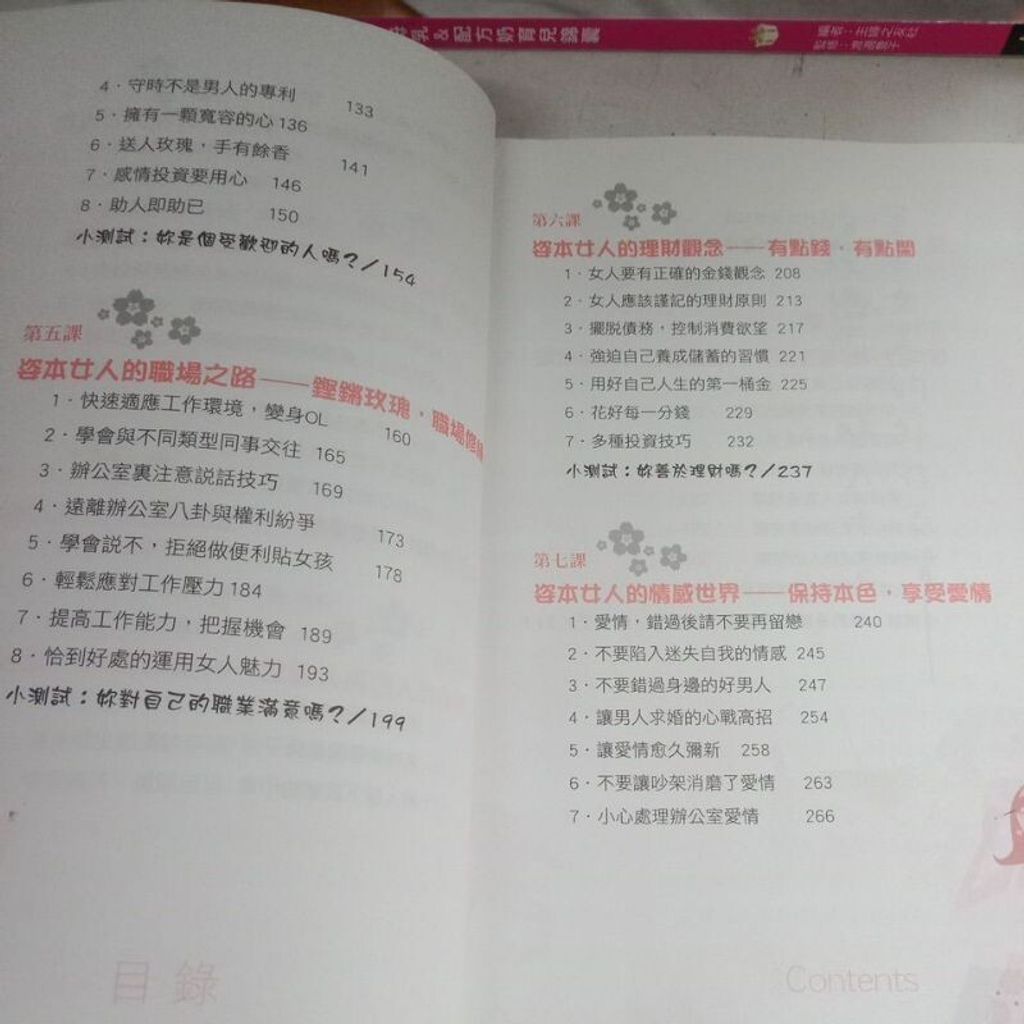 4．守時不是男人的專利 133
5．擁有一顆寬容的心 136
6．送人玫瑰，手有餘香 141
7．感情投資要用心 146
8．助人即助己 150
小測試：妳是個受歡迎的人嗎？/154
第五課
姿本女人的職場之路——鏗鏘玫瑰，職場
1．快速適應工作環境，變身OL 160
2．學會與不同類型同事交往 165
3．辦公室裏注意説話技巧 169
4．遠離辦公室八卦與權利紛爭 173
5．學會説不，拒絕做便利貼女孩 178
6．輕鬆應對工作壓力 184
7．提高工作能力，把握機會 189
8．恰到好處的運用女人魅力 193
小測試：妳對自己的職業滿意嗎？/199
目錄
第六課
姿本女人的理財觀念——有點錢，有點閒
1．女人要有正確的金錢觀念 208
2．女人應該謹記的理財原則 213
3．擺脱債務，控制消費欲望 217
4．強迫自己養成儲蓄的習慣 221
5．用好自己人生的第一桶金 225
6．花好每一分錢 229
7．多種投資技巧 232
小測試：妳善於理財嗎？/237
第七課
姿本女人的情感世界——保持本色，享受愛情
1．愛情，錯過後請不要再留戀 240
2．不要陷入迷失自我的情感 245
3．不要錯過身邊的好男人 247
4．讓男人求婚的心戰高招 254
5．讓愛情愈久彌新 258
6．不要讓吵架消磨了愛情 263
7．小心處理辦公室愛情 266
Contents